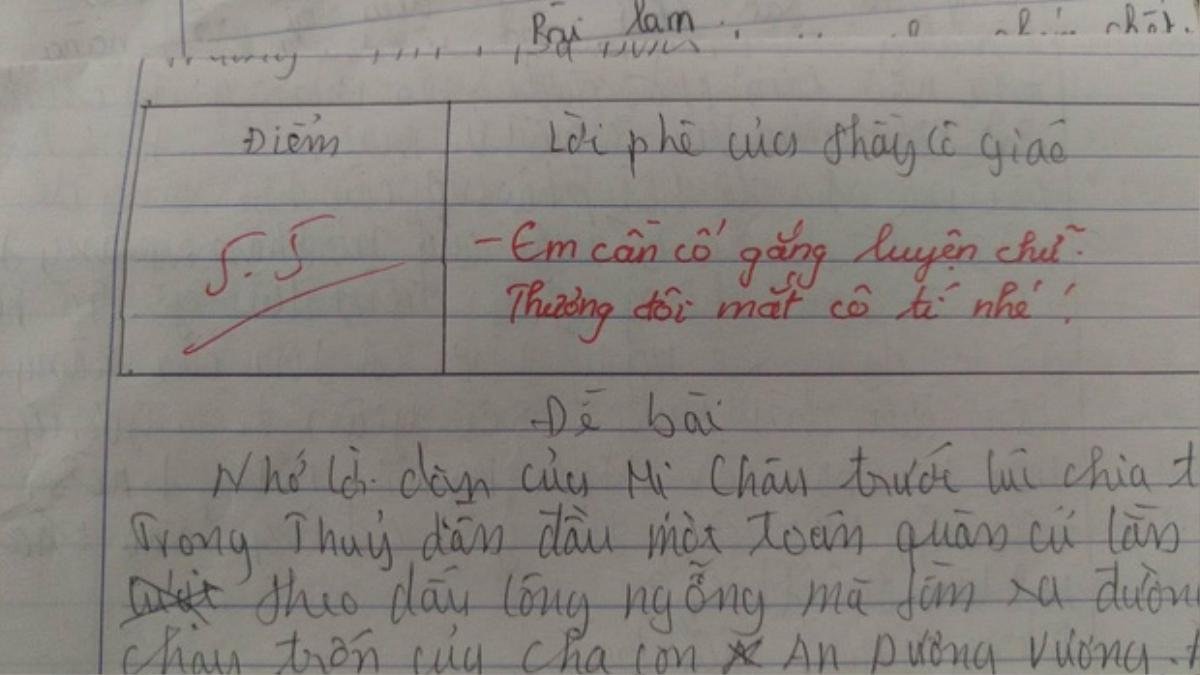 Bài làm
nhất.
Điểm
Lời phê của thầy cô giáo
5.5
- Em cần cố gắng luyện chữ.
Thương đôi mắt cô tí nhé!
Đề bài
Nhớ lời dặn của Mị Châu trước lúc chia t
Trọng Thuỷ dẫn đầu một toán quân cứ lần
theo dấu lông ngỗng mà tìm ra đường
chạy trốn của cha con An Dương Vương.